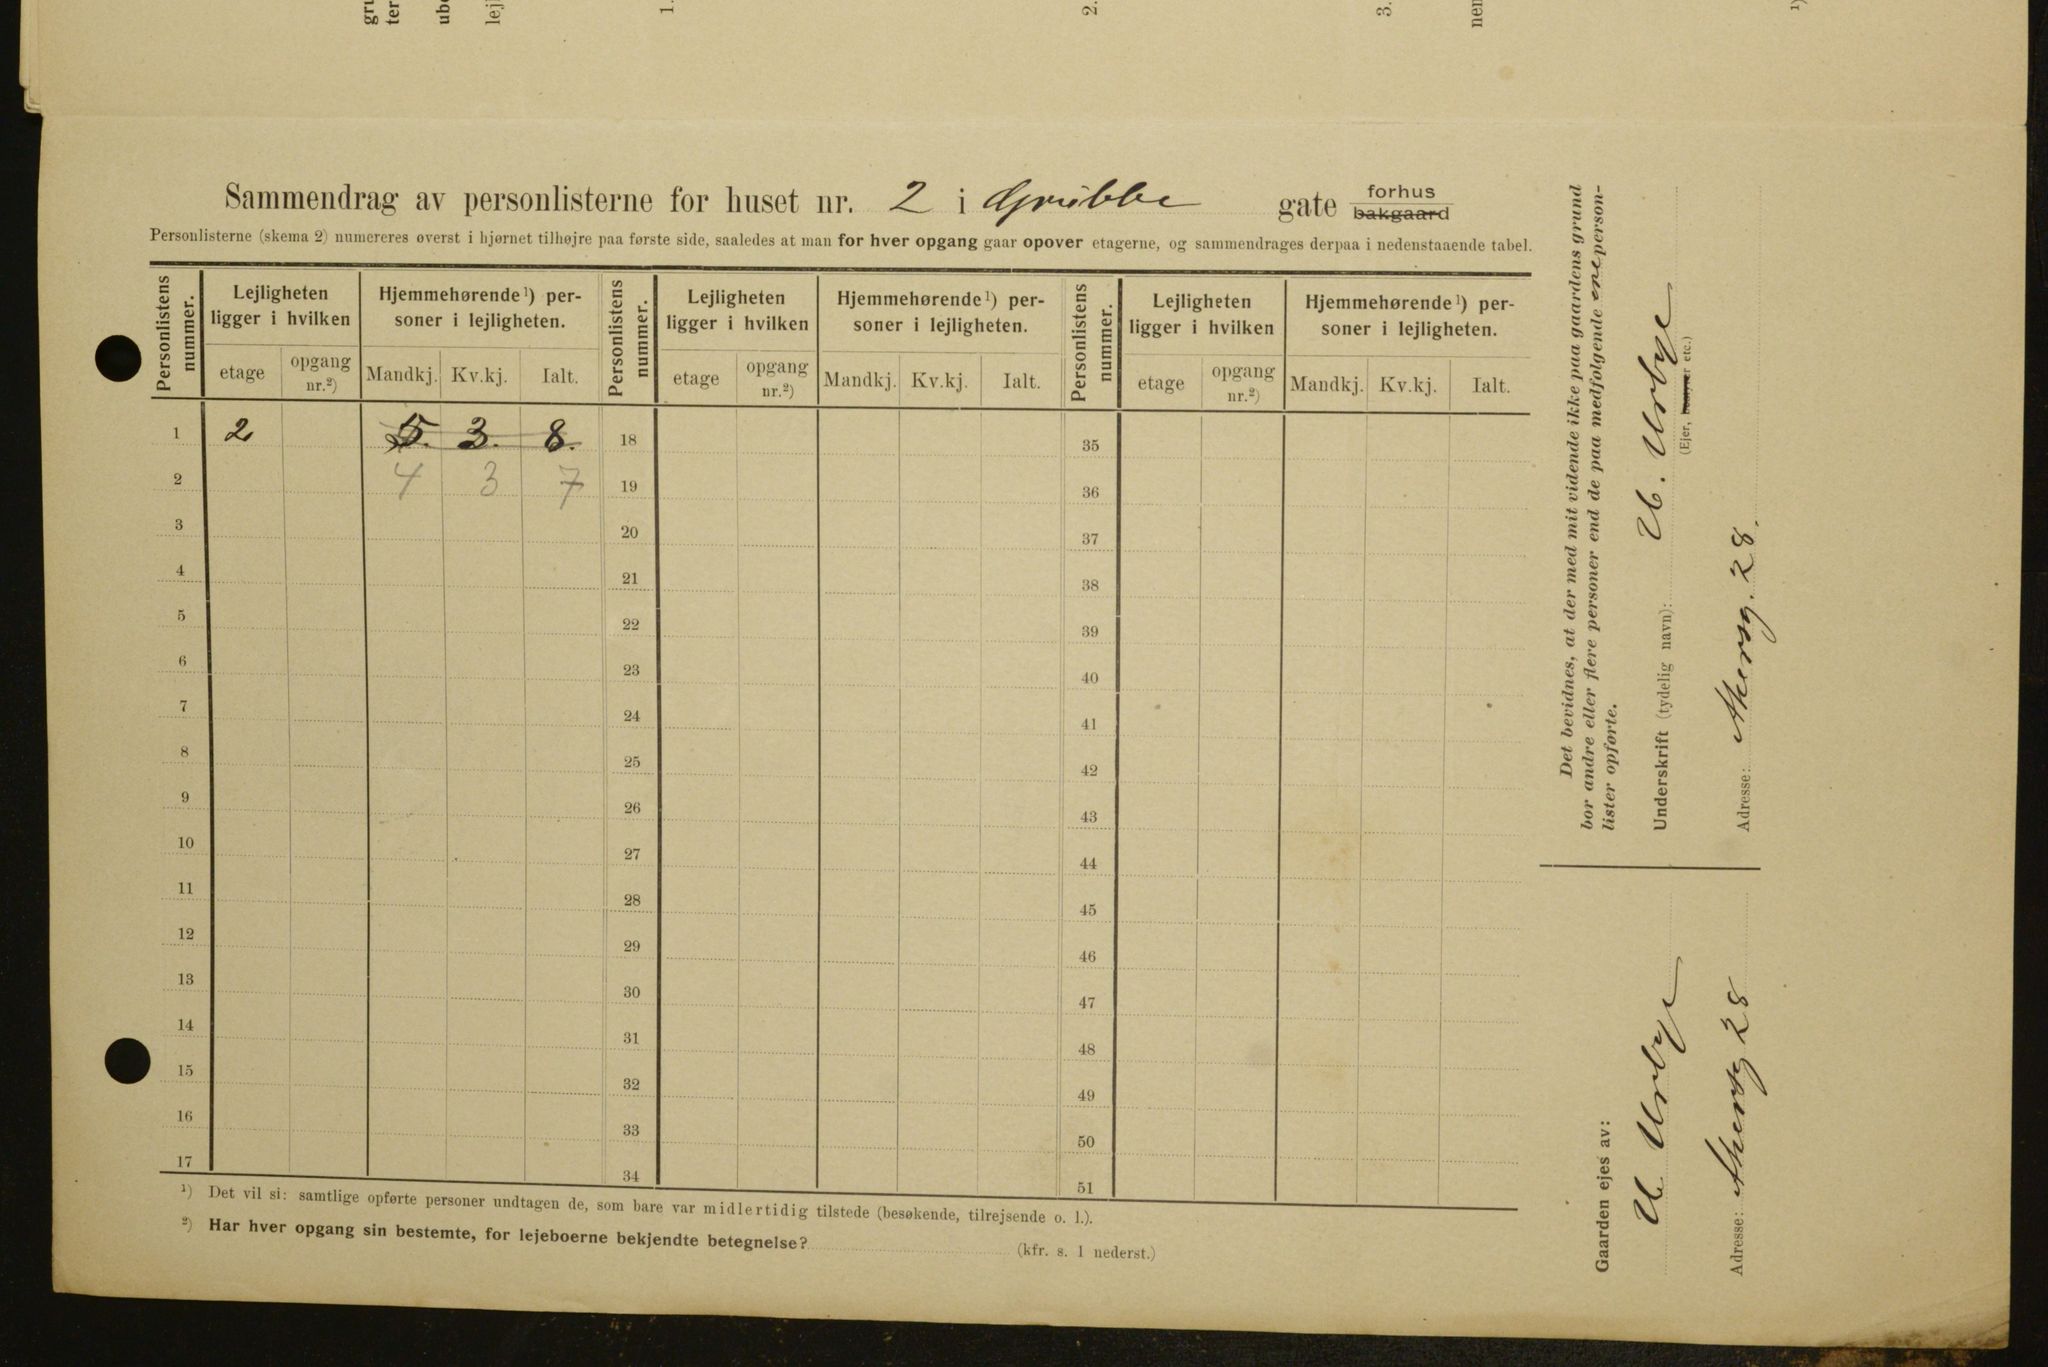 Sammendrag av personlisterne for huset nr. 2 i Grubbe gate forhus bakgaard
Personlisterne (skema 2) numereres øverst i hjørnet tilhøjre paa første side, saaledes at man for hver opgang gaar opover etagerne, og sammendrages derpaa i nedenstaaende tabel.
Personlistens nummer. Lejligheten ligger i hvilken Hjemmehørende ¹) personer i lejligheten. Personlistens nummer. Lejligheten ligger i hvilken Hjemmehørende ¹) personer i lejligheten. Personlistens nummer. Lejligheten ligger i hvilken Hjemmehørende ¹) personer i lejligheten.
etage opgang nr.²) Mandkj. Kv.kj. Ialt. etage opgang nr.²) Mandkj. Kv.kj. Ialt. etage opgang nr.²) Mandkj. Kv.kj. Ialt.
1 2 5. 3. 8. 18 35
2 4 3 7 19 36
3 20 37
4 21 38
5 22 39
6 23 40
7 24 41
8 25 42
9 26 43
10 27 44
11 28 45
12 29 46
13 30 47
14 31 48
15 32 49
16 33 50
17 34 51
¹) Det vil si: samtlige opførte personer undtagen de, som bare var midlertidig tilstede (besøkende, tilrejsende o. l.).
²) Har hver opgang sin bestemte, for lejeboerne bekjendte betegnelse? (kfr. s. 1 nederst.)
Det bevidnes, at der med mit vidende ikke paa gaardens grund
bor andre eller flere personer end de paa medfølgende ene person-
lister opførte.
Underskrift (tydelig navn): U. Urbye
(Ejer, bestyrer etc.)
Adresse: Akersg. 28.
Gaarden ejes av:
U Urbye
Adresse: Akersg 28